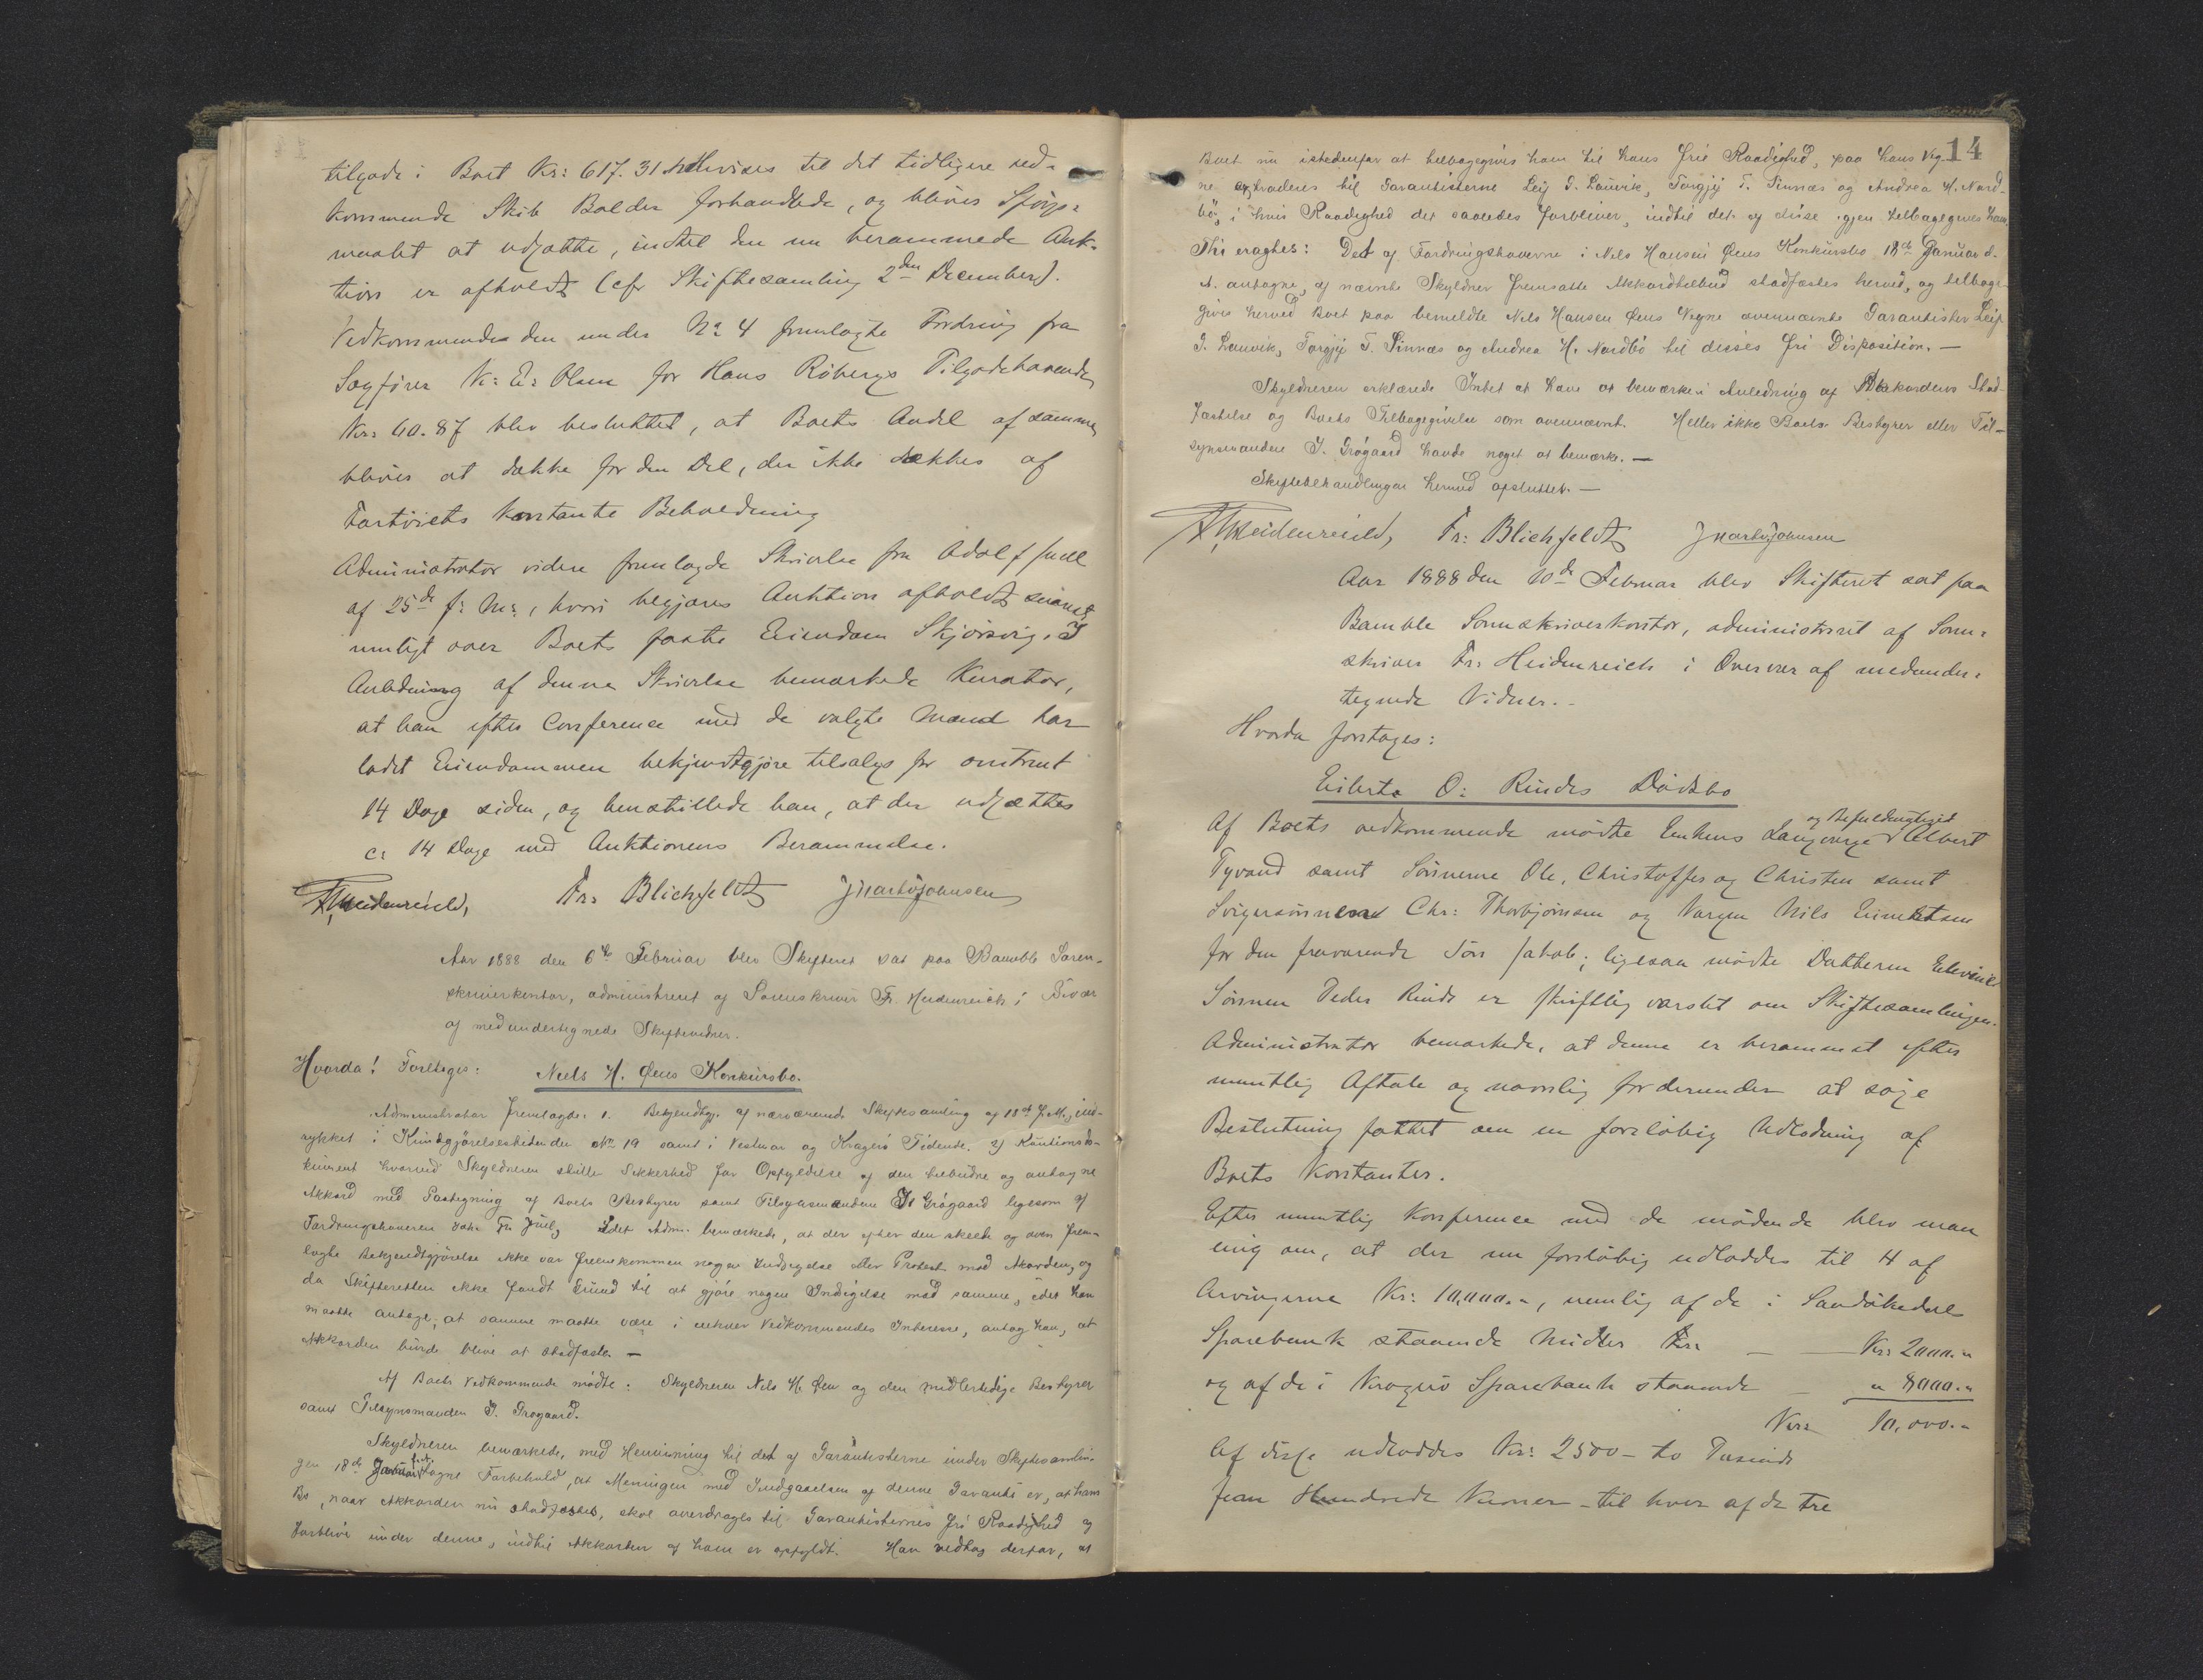 tilgode i Boet Kr: 617.31 henvises til det tidligere ved-
kommende Skib Balder forhandlede, og blives Spørgs-
maalet at udsætte, indtil den nu berammede Auk-
tion er afholdt (cfr Skiftesamling 2den December).
Vedkommende den under No 4 fremlagte Fordring fra
Sagfører K: E: Olsen for Hans Röbergs Tilgodehavende
Kr: 40.87 blev besluttet, at Boets Andel af samme
blives at dække for den Del, der ikke dækkes af
Fartöiets Kontante Beholdning
Administrator videre fremlagde Skrivelse fra Adolf Juell
af 25de f: M:, hvori begjæres Auktion afholdt snarest
muligt over Boets faste Eiendom Skjörsvig. I
Anledning af denne Skrivelse bemærkede Kurator,
at han efter Conference med de valgte Mænd har
ladet Eiendommen bekjendtgjöre tilsalgs for omtrent
14 Dage siden, og henstillede han, at der udsættes
c: 14 Dage med Auktionens Berammelse.
Fr. Heidenreich, Fr: Blichfeldt J Martin Johnsen
Aar 1888 den 6te Februar blev Skifteret sat paa Bamble Soren-
skriverkontor, administreret af Sorenskriver Fr. Heidenreich i Bivær
af medundertegnede Skiftevidner.
Hvorda! Foretages: Niels H. Øens Konkursbo.
Administrator fremlagde: 1. Bekjendtgj. af nærværende Skiftesamling af 18de f. M., ind-
rykket i Kundgjörelsestidende No 19 samt i Vestmar og Kragerö Tidende. 2) Kautionsdo-
kument hvorved Skyldneren stiller Sikkerhed for Opfyldelse af den tilbudne og antagne
Akkord med Paategning af Boets Bestyrer samt Tilsynsmanden J. Grögaard ligesom af
Fordringshaveren Fr. Juel, Idet Adm. bemærkede, at der efter den skeede og oven frem-
lagte Bekjendtgjörelse ikke var fremkommen nogen Indsigelse eller Protest mod Akorden, og
da Skifteretten ikke fandt Grund til at gjöre nogen Indsigelse mod samme, idet han
maatte antage, at samme maatte være i enhver Vedkommendes Interesse, antog han, at
Akkorden burde blive at stadfæste. —
Af Boets Vedkommende mödte: Skyldneren Nils H. Øen og den midlertidige Bestyrer
samt Tilsynsmanden J. Grogaard.
Skyldneren bemærkede, med Henvisning til det af Garantisterne under Skiftesamlin-
gen 18de Januar tagne Forbehold, at Meningen med Indgaaelsen af denne Garanti er, at hans
Bo, naar Akkorden nu stadfæstes, skal overdrages til Garantisternes fri Raadighed og
forblive under denne, indtil Akkorden af ham er opfyldt. Han vedtog derfor, at
14
Boet nu istedenfor at tilbagegives ham til hans frie Raadighed, paa hans Veg-
ne extraderes til Garantisterne Leif G. Lauvik, Torgjej T. Sinnæs og Andrea H. Nord-
bö, i hvis Raadighed det saaledes forbliver, indtil det af disse igjen tilbagegives ham.
Thi eragtes: Det af Fordringshaverne i Nils Hansen Øens Konkursbo 18de Januar d.
A. antagne, af nævnte Skyldner fremsatte Akkordtilbud stadfæstes herved, og tilbage-
gives herved Boet paa bemeldte Nils Hansen Øens Vegne ovennævnte Garantister Leif
G. Lauvik, Torgjej T. Sinnæs og Andrea H. Nordbö til disses fri Disposition. —
Skyldneren erklærede Intet at have at bemærke i Anledning af Akkordens Stad-
fæstelse og Boets Tilbagegivelse som ovennævnt. Heller ikke Boets Bestyrer eller Til-
synsmanden J. Grögaard havde noget at bemærke. —
Skiftebehandlingen hermed afsluttet. —
Fr. Heidenreich, Fr: Blichfeldt J Martin Johnsen
Aar 1888 den 10de Februar blev Skifteret sat paa
Bamble Sorenskriverkontor, administreret af Soren-
skriver Fr: Heidenreich i Overvær af medunder-
tegnede Vidner. -
Hvorda foretages:
Eilerts O: Rindes Dödsbo
og Befuldmægtiged
Af Boets vedkommende mödte Enkens Laugverge Albert
Tyvand samt Sönnerne Ole, Christoffer og Christen samt
Svigersönnerne Chr: Thorbjörnsen og Vergen Nils
for den fraværende Sön Jakob; ligesaa mödte Datteren
Sönnen Peder Rinde er skriftlig varslet om Skiftesamlingen.
Administrator bemærkede, at denne er berammet efter
mundtlig Aftale og navnlig for derunder at söge
Beslutning fattet om en foreløbig Udlodning af
Boets Kontanter.
Efter mundtlig Konference med de mödende blev man
enig om, at der nu foreløbig udloddes til 4 af
Arvingerne Kr: 10,000.-, nemlig af de i Sandökedal
Sparebank staaende Midler Kr: — — Kr: 2000.-
og af de i Kragerö Sparebank staaende — " 8000.-
Kr: 10,000.-
Af disse udloddes Kr: 2500 - to Tusinde
fem Hundrede Kroner - til hver af de tre